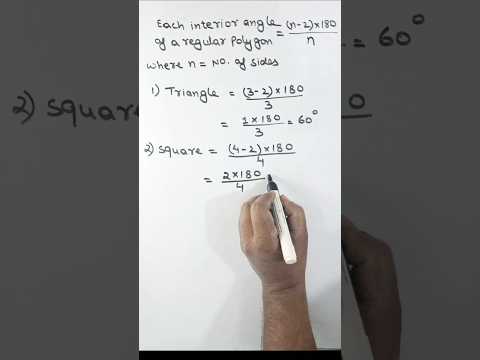 Each interior angle
of a regular Polygon = (n-2)×180/n
where n = No. of sides
1) Triangle = (3-2)×180/3
= 1×180/3 = 60°
2) Square = (4-2)×180/4
= 2×180/4